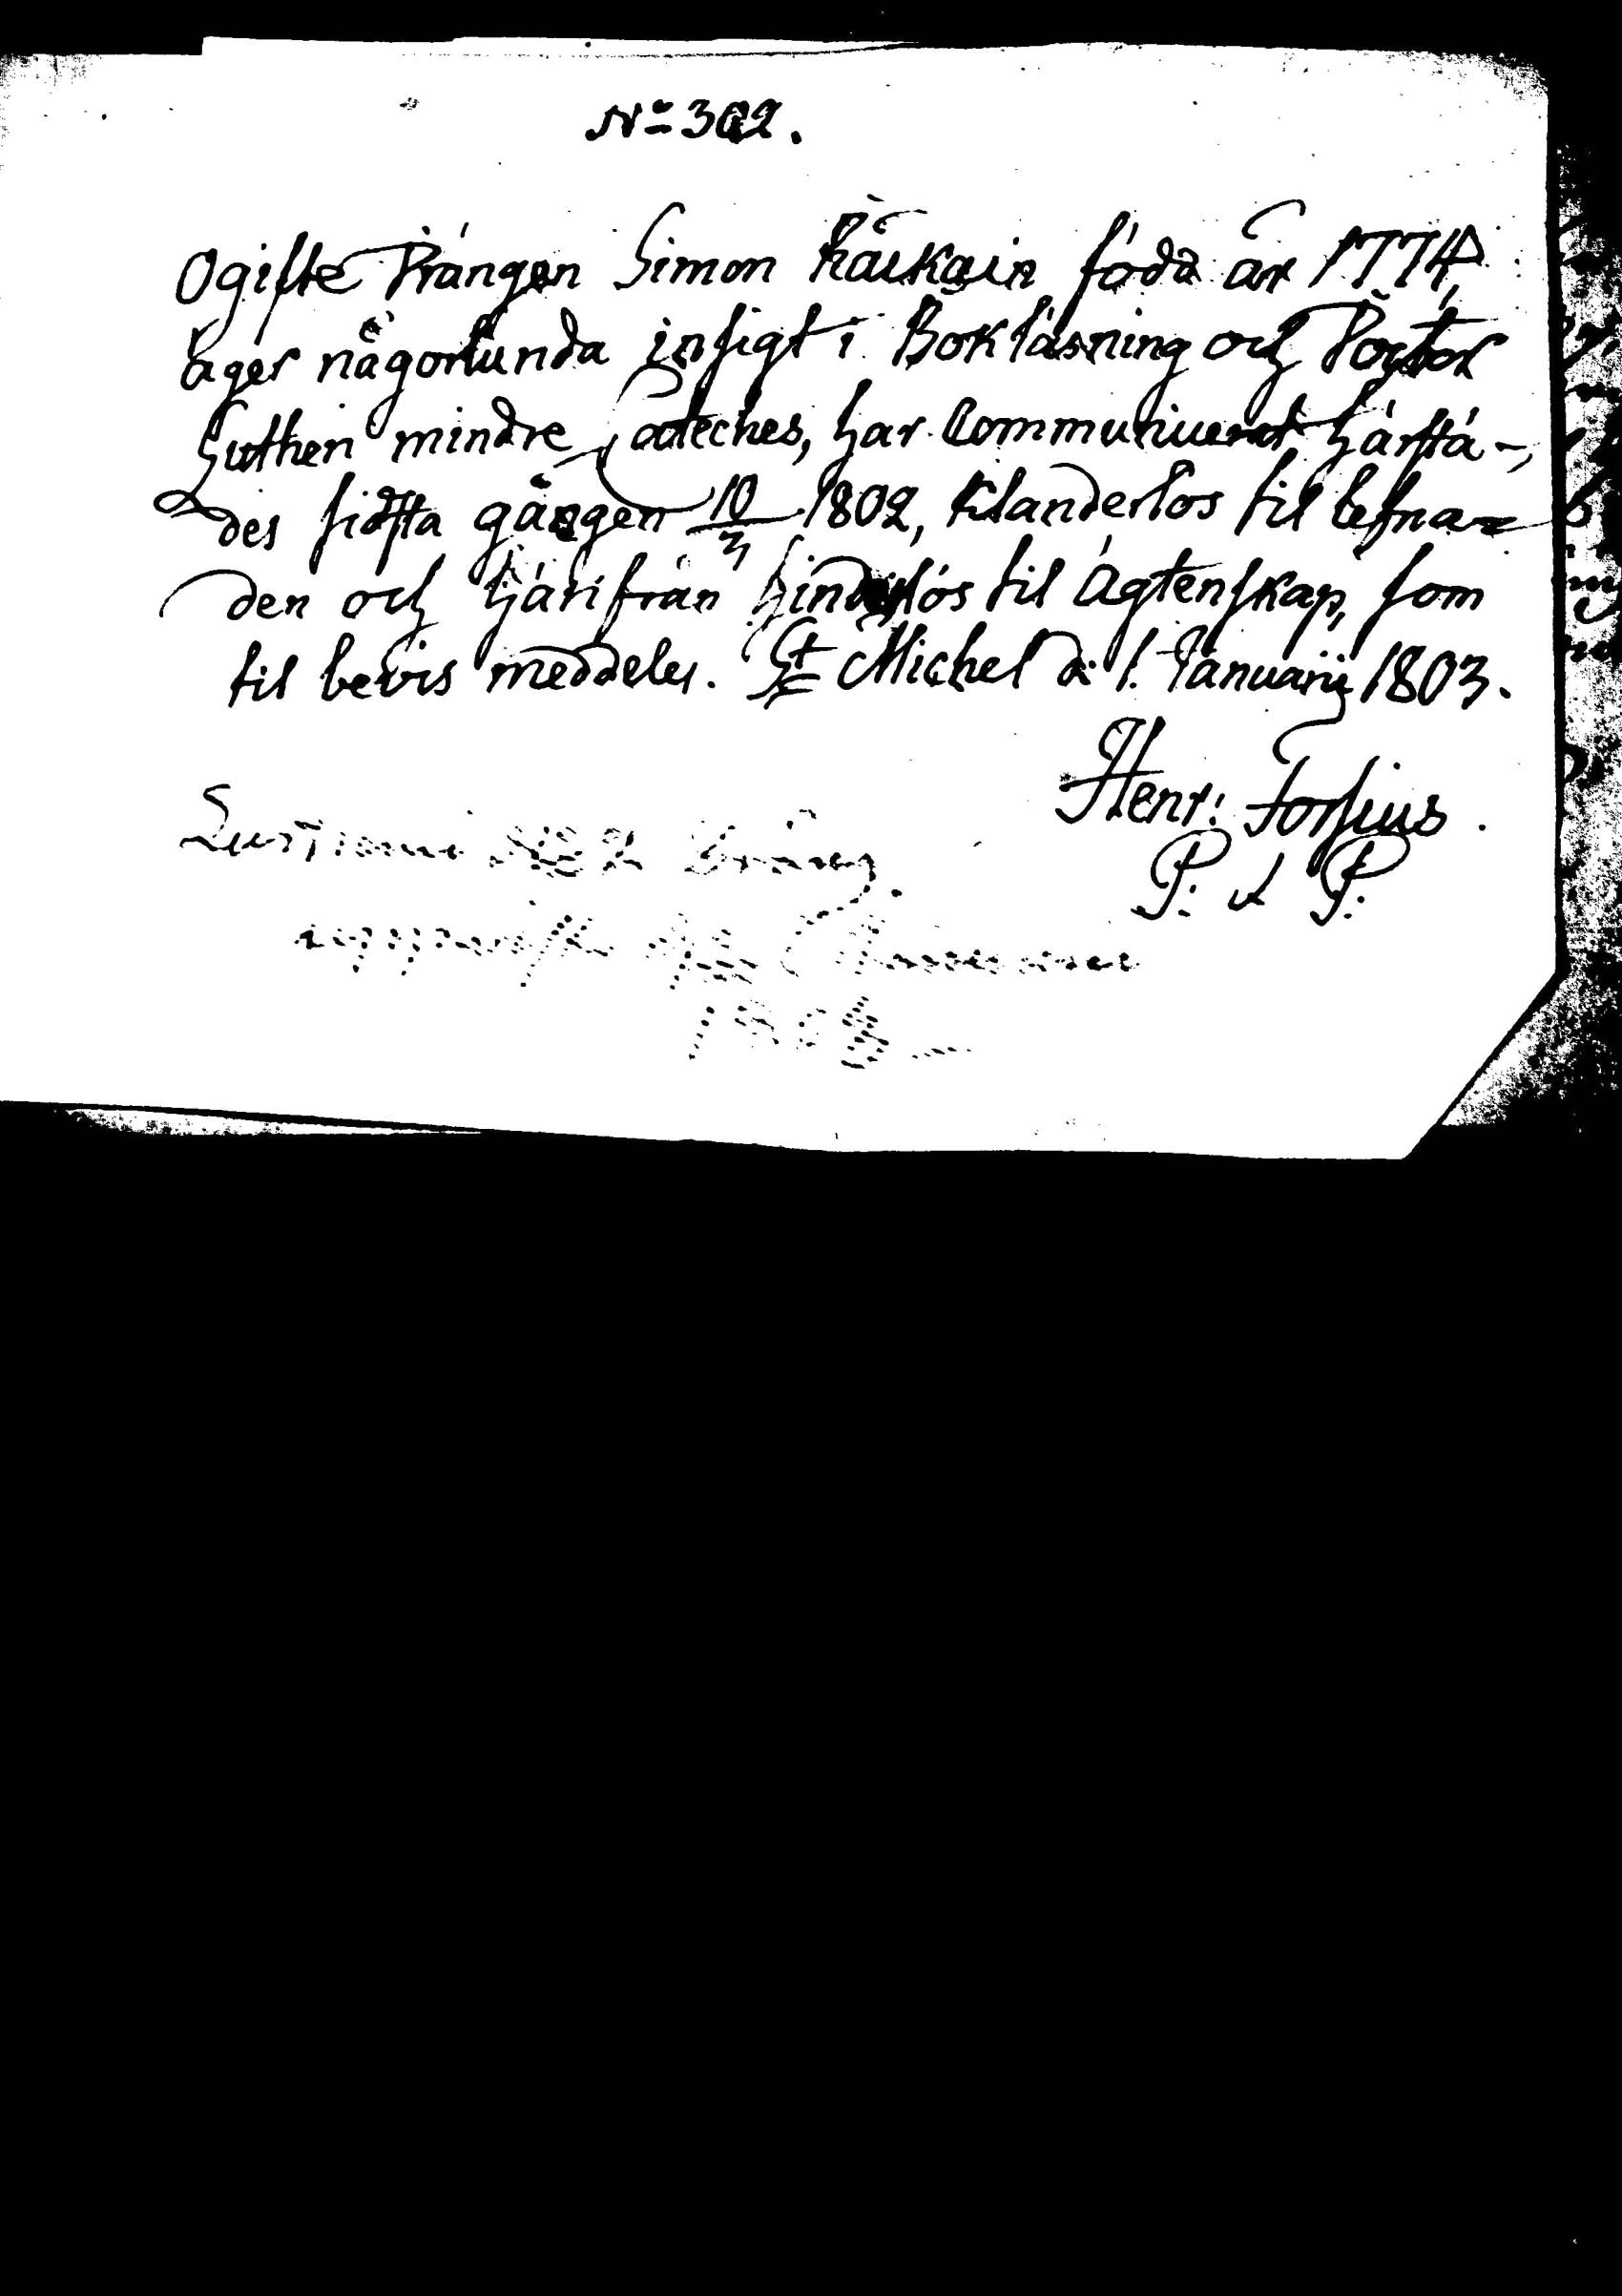 No 302.
Ogifte Drängen Simon Räikäin född år 1774,
äger någorlunda insigt i Bokläsning och Doctor
Luthers mindre Cateches, har Communicerat härstä-
des sidsta gången 10/3 1802, Klanderlös til lefna=
den och härifrån hinderlös til Ägtenskap, som
til bevis meddeles. St Michel d: 1. Januarii 1803.
Henr: Forsius.
P. & P.
No 2 Dräng
1803